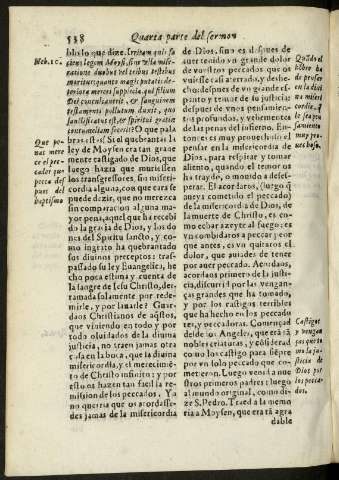 538
Quarta parte del sermon
Heb. 10.
blo lo que dize. Irritam quis fa
ciens legem Moysi, sine ulla mise-
ratione duobus vel tribus testibus
moritur: quanto magis putatis de-
teriora mereri supplicia, qui filium
Dei conculcaverit, & sanguinem
testamenti pollutum duxit, quo
sanctificatus est, & spiritui gratiæ
contumeliam fecerit? O que pala
bras estas! Si al quebrantar la ley
de Moysen tras gran
mente castigado de Dios, que
luego hazia que muriessen
los transgressores, sin miseri
cordia alguna, con que cara se
puede dezir, que no merezca
sin comparacion alguna ma
yor pena, aquel que ha recebi
do la gracia de Dios, y los do
nes del Spiritu sancto, y co-
mo ingrato ha quebrantado
sus divinos preceptos: tras-
passado su ley Euangelica, he
cho poca estima y cuenta de
la sangre de Jesu Christo, der-
ramada solamente por rede-
mirle, y por lavarle? Guar-
daos Christianos de aquestos,
que viviendo en todo y por
todo olvidados de la divina
justicia, no traen jamas otra
cosa en la boca, que la divina
misericordia, y el merecimie-
to de Christo infinito: y por
esto os hazen tan facil la re-
mission de los peccados. Yo
no querria que os acordasse-
des jamas de la misericordia
Que pe-
nas mere
ce el pec-
cador que
pecca des
pues del
baptismo
de Dios, sino es despues de
aver tenido vn grande dolor
de vuestros peccados, que os
vuiesse casi atterrado, y des-
pues de vn grande espanto,
y temor de su divina justicia,
despues de vnos pensamien-
tos profundos, y vehementes
de las penas del infierno. En-
tonces es muy provechoso el
pensar en la misericordia de
Dios, para respirar y tomar
aliento, quando el temor os
ha traydo, o mouido a deses-
perar. El acordaros, (luego q̃
aueys cometido el peccado)
de la misericordia de Dios, de
la muerte de Christo, es co-
mo echar azeyte al fuego: es
vn combidaros a peccar: por
que antes, es vn quitaros el
dolor, que auiades de tener
por auer peccado. Acordaos,
acordaos primero de la justi-
cia, discurrid por las vengan-
ças grandes que ha tomado,
y por los castigos terribles
que ha hecho en los peccado
res, y peccadoras. Començad
desde los Angeles, que erã tã
nobles criaturas, y considerad
como los castigo para siẽpre
por vn solo peccado que co-
metieron. Luego venid a nue
stros primeros padres: luego al
al mundo original, como di-
ze S. Pedro. Traed a la memo
ria a Moysen, que era tã agra
dable
Quãdo el
hõbre ha
de pensar
en la divi
na miseri
cordia, y
es
samiento
muy pro-
uechoso.
Castigos
y vengan
ças que to
mo la ju-
sticia de
Dios por
los pecca-
dos.